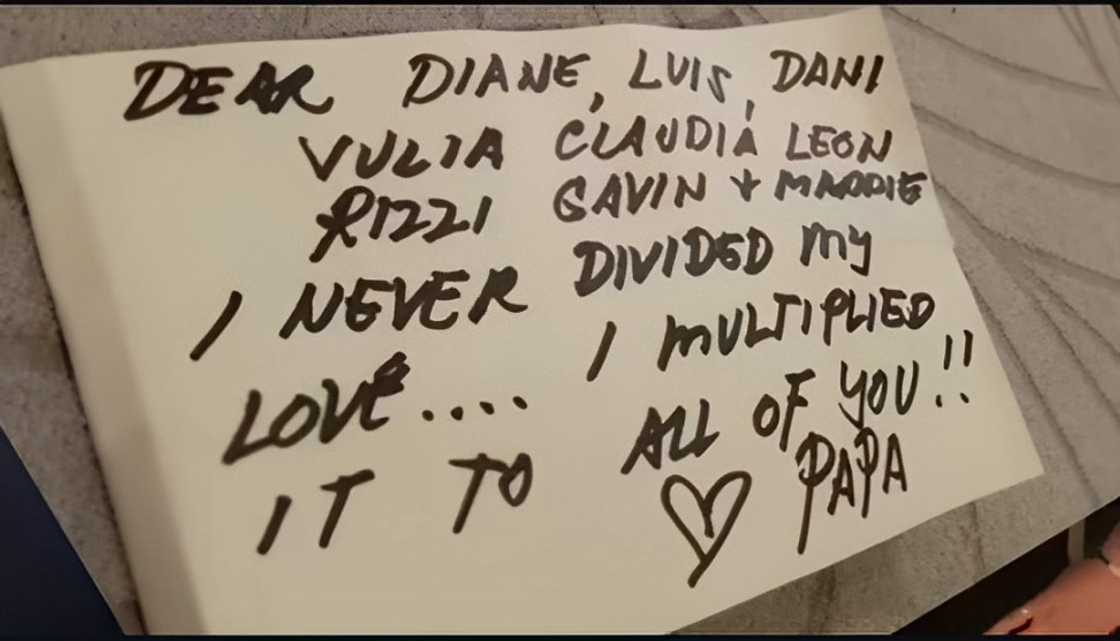 DEAR DIANE, LUIS, DANI
VULIA CLAUDIA LEON
RIZZI GAVIN + MADDIE
I NEVER DIVIDED MY
LOVE.... I MULTIPLIED
IT TO ALL OF YOU!!
♡ PAPA